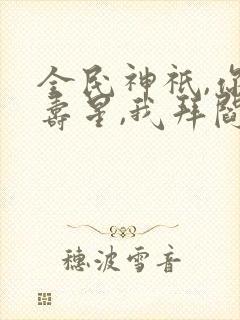 全民神祇,你
寿星,我拜阎
穗波雪音